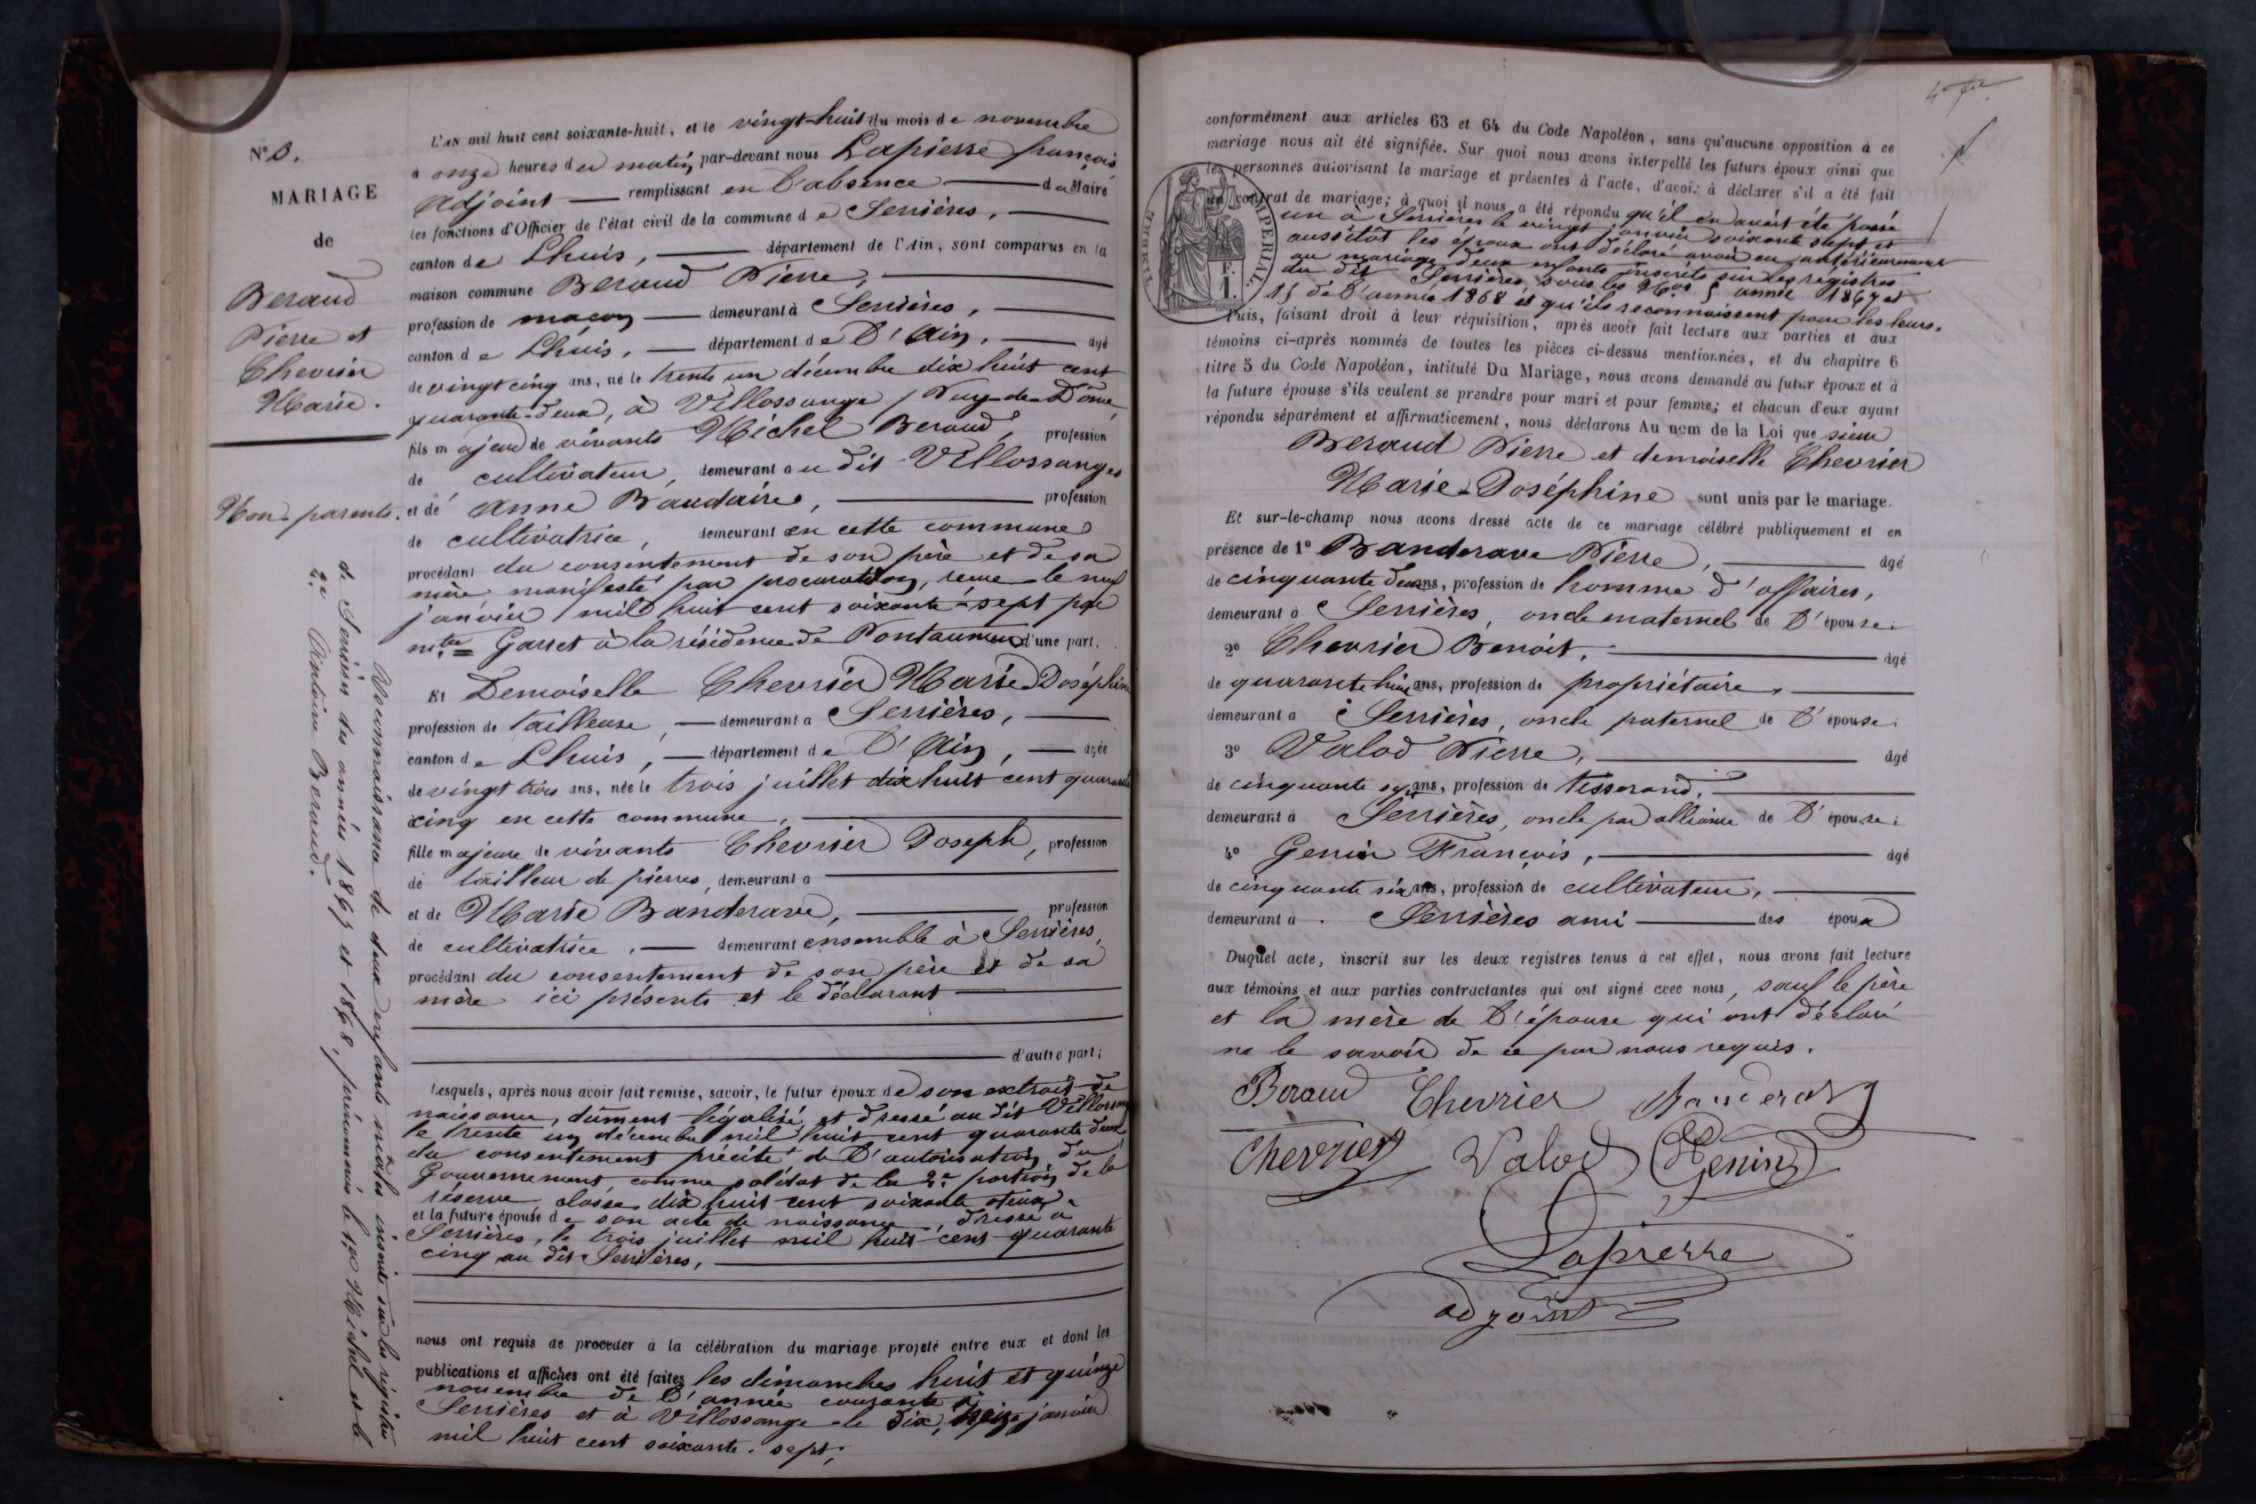 N° 8.
MARIAGE
de
Beraud
Pierre et
Chevrier
Marie.
Non parents.
Reconnaissance de deux enfants naturels inscrits sur les registres
de Serrières des années 1867 et 1868, prénommés le 1er Michel et le
2e Antoine Beraud.
L'AN mil huit cent soixante-huit, et le vingt-huit du mois de novembre
à onze heures du matin, par-devant nous Lapierre françois
Adjoint remplissant en l'absence du Maire
les fonctions d'Officier de l'état civil de la commune de Serrières,
canton de Lhuis, département de l'Ain, sont comparus en la
maison commune Beraud Pierre,
profession de maçon demeurant à Serrières,
canton de Lhuis, département de l'Ain, âgé
de vingt cinq ans, né le trente un décembre dix huit cent
quarante-deux, à Villossange, Puy-de-Dôme,
fils majeur de vivants Michel Beraud, profession
de cultivateur, demeurant au dit Villossanges
et de Anne Baudaire, profession
de cultivatrice, demeurant en cette commune
procédant du consentement de son père et de sa
mère manifesté par procuration, reçue le neuf
janvier mil huit cent soixante-sept par
mtre Garret à la résidence de Pontaumur d'une part.
Et Demoiselle Chevrier Marie Joséphine
profession de tailleuse, demeurant à Serrières,
canton de Lhuis, département de l'Ain, âgée
de vingt trois ans, née le trois juillet dix huit cent quarante
cinq en cette commune,
fille majeure de vivants Chevrier Joseph, profession
de tailleur de pierres, demeurant à
et de Marie Banderave, profession
de cultivatrice, demeurant ensemble à Serrières,
procédant du consentement de son père et de sa
mère ici présents et le déclarant
d'autre part;
Lesquels, après nous avoir fait remise, savoir, le futur époux de son extrait de
naissance, dûment légalisé et dressé au dit Villossange
le trente un décembre mil huit cent quarante deux
du consentement précité et de l'autorisation du
Gouvernement comme soldat de la 2e portion de la
réserve classe dix huit cent soixante deux.
et la future épouse de son acte de naissance, dressé à
Serrières, le trois juillet mil huit cent quarante
cinq au dit Serrières,
nous ont requis de procéder à la célébration du mariage projeté entre eux et dont les
publications et affiches ont été faites les dimanches huit et quinze
novembre de l'année courante à
Serrières et à Villossange le dix, treize janvier
mil huit cent soixante-sept;
conformément aux articles 63 et 64 du Code Napoléon, sans qu'aucune opposition à ce
mariage nous ait été signifiée. Sur quoi nous avons interpellé les futurs époux ainsi que
les personnes autorisant le mariage et présentes à l'acte, d'avoir à déclarer s'il a été fait
un contrat de mariage; à quoi il nous a été répondu qu'il en avait été passé
un à Serrières le vingt janvier soixante sept et
aussitôt les époux ont déclaré avoir eu antérieurement
au mariage deux enfants inscrits sur les registres
du dit Serrières, sous les Nos 5 année 1867 et
15 de l'année 1868 et qu'ils reconnaissent pour les leurs.
TIMBRE IMPERIAL
F.
1.
Puis, faisant droit à leur réquisition, après avoir fait lecture aux parties et aux
témoins ci-après nommés de toutes les pièces ci-dessus mentionnées, et du chapitre 6
titre 5 du Code Napoléon, intitulé Du Mariage, nous avons demandé au futur époux et à
la future épouse s'ils veulent se prendre pour mari et pour femme; et chacun d'eux ayant
répondu séparément et affirmativement, nous déclarons Au nom de la Loi que sieur
Beraud Pierre et demoiselle Chevrier
Marie-Joséphine sont unis par le mariage.
Et sur-le-champ nous avons dressé acte de ce mariage célébré publiquement et en
présence de 1° Banderave Pierre, âgé
de cinquante deux ans, profession de homme d'affaires,
demeurant à Serrières, oncle maternel de l'épouse;
2° Chevrier Benoit, âgé
de quarante huit ans, profession de propriétaire,
demeurant à Serrières, oncle paternel de l'épouse;
3° Valod Pierre, âgé
de cinquante sept ans, profession de tisserand,
demeurant à Serrières, oncle par alliance de l'épouse;
4° Genin François, âgé
de cinquante six ans, profession de cultivateur,
demeurant à Serrières ami des époux
Duquel acte, inscrit sur les deux registres tenus à cet effet, nous avons fait lecture
aux témoins et aux parties contractantes qui ont signé avec nous, sauf le père
et la mère de l'épouse qui ont déclaré
ne le savoir de ce par nous requis.
Beraud Chevrier Banderav
Chevrier Valod Genin
Lapierre
adjoint